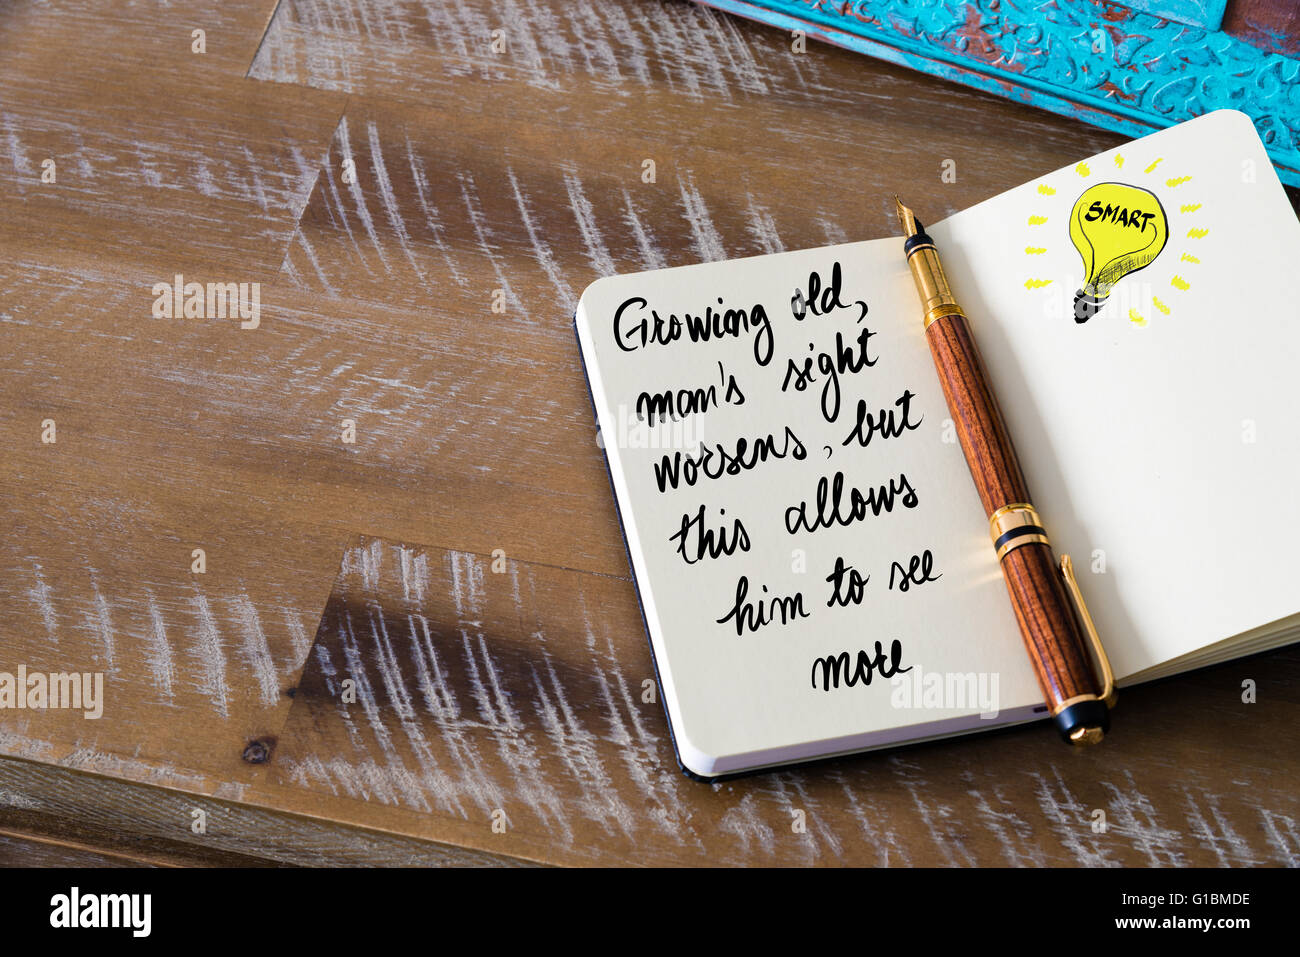 Growing old,
man's sight
worsens, but
this allows
him to see
more
SMART
alamy
Image ID: G1BMDE
www.alamy.com